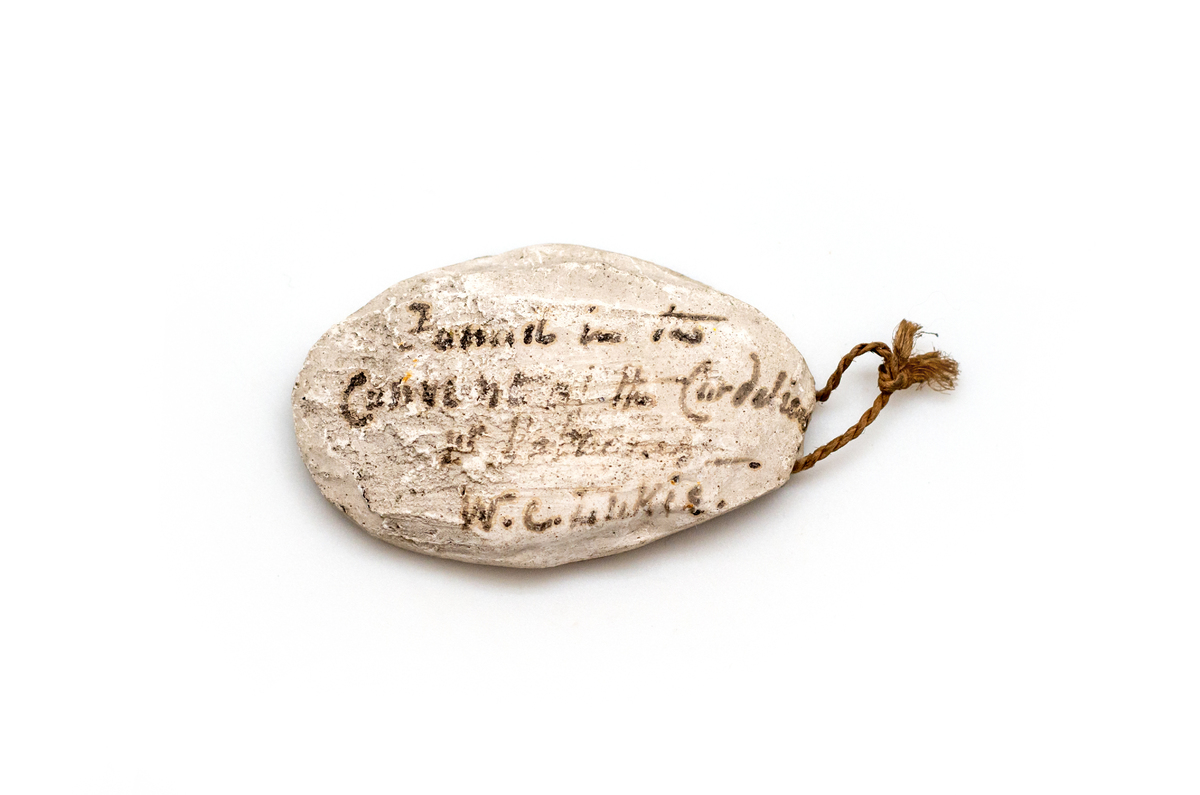 Found in the
Convent of the Cordeliers
at
W. C. Lukis.